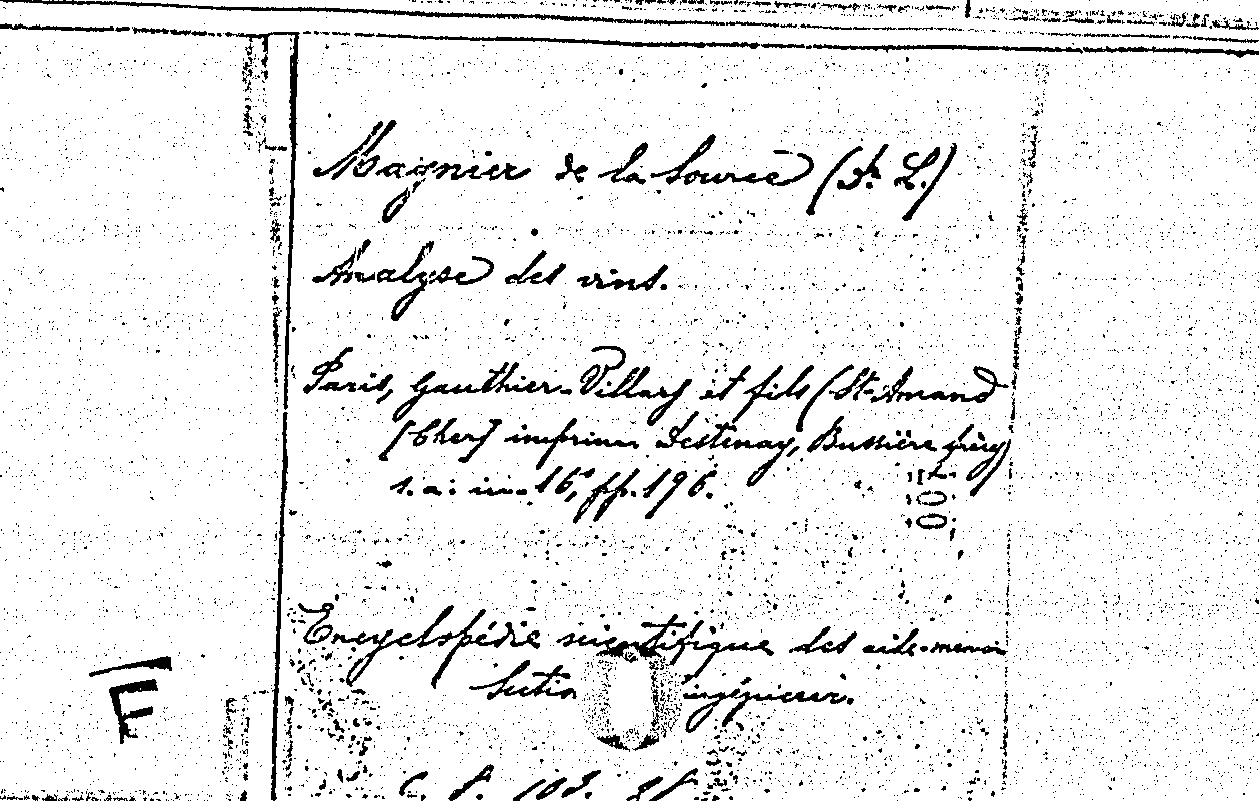 Magnier de la Source (Dr. L.)
Analyse des vins.
Paris, Gauthier-Villars et fils (St-Amand
[Cher] imprim. Destenay, Bussière frères)
s. a. in-16°, pp. 196.
Encyclopédie scientifique des aide-mémoire
Section ingénieur.
F